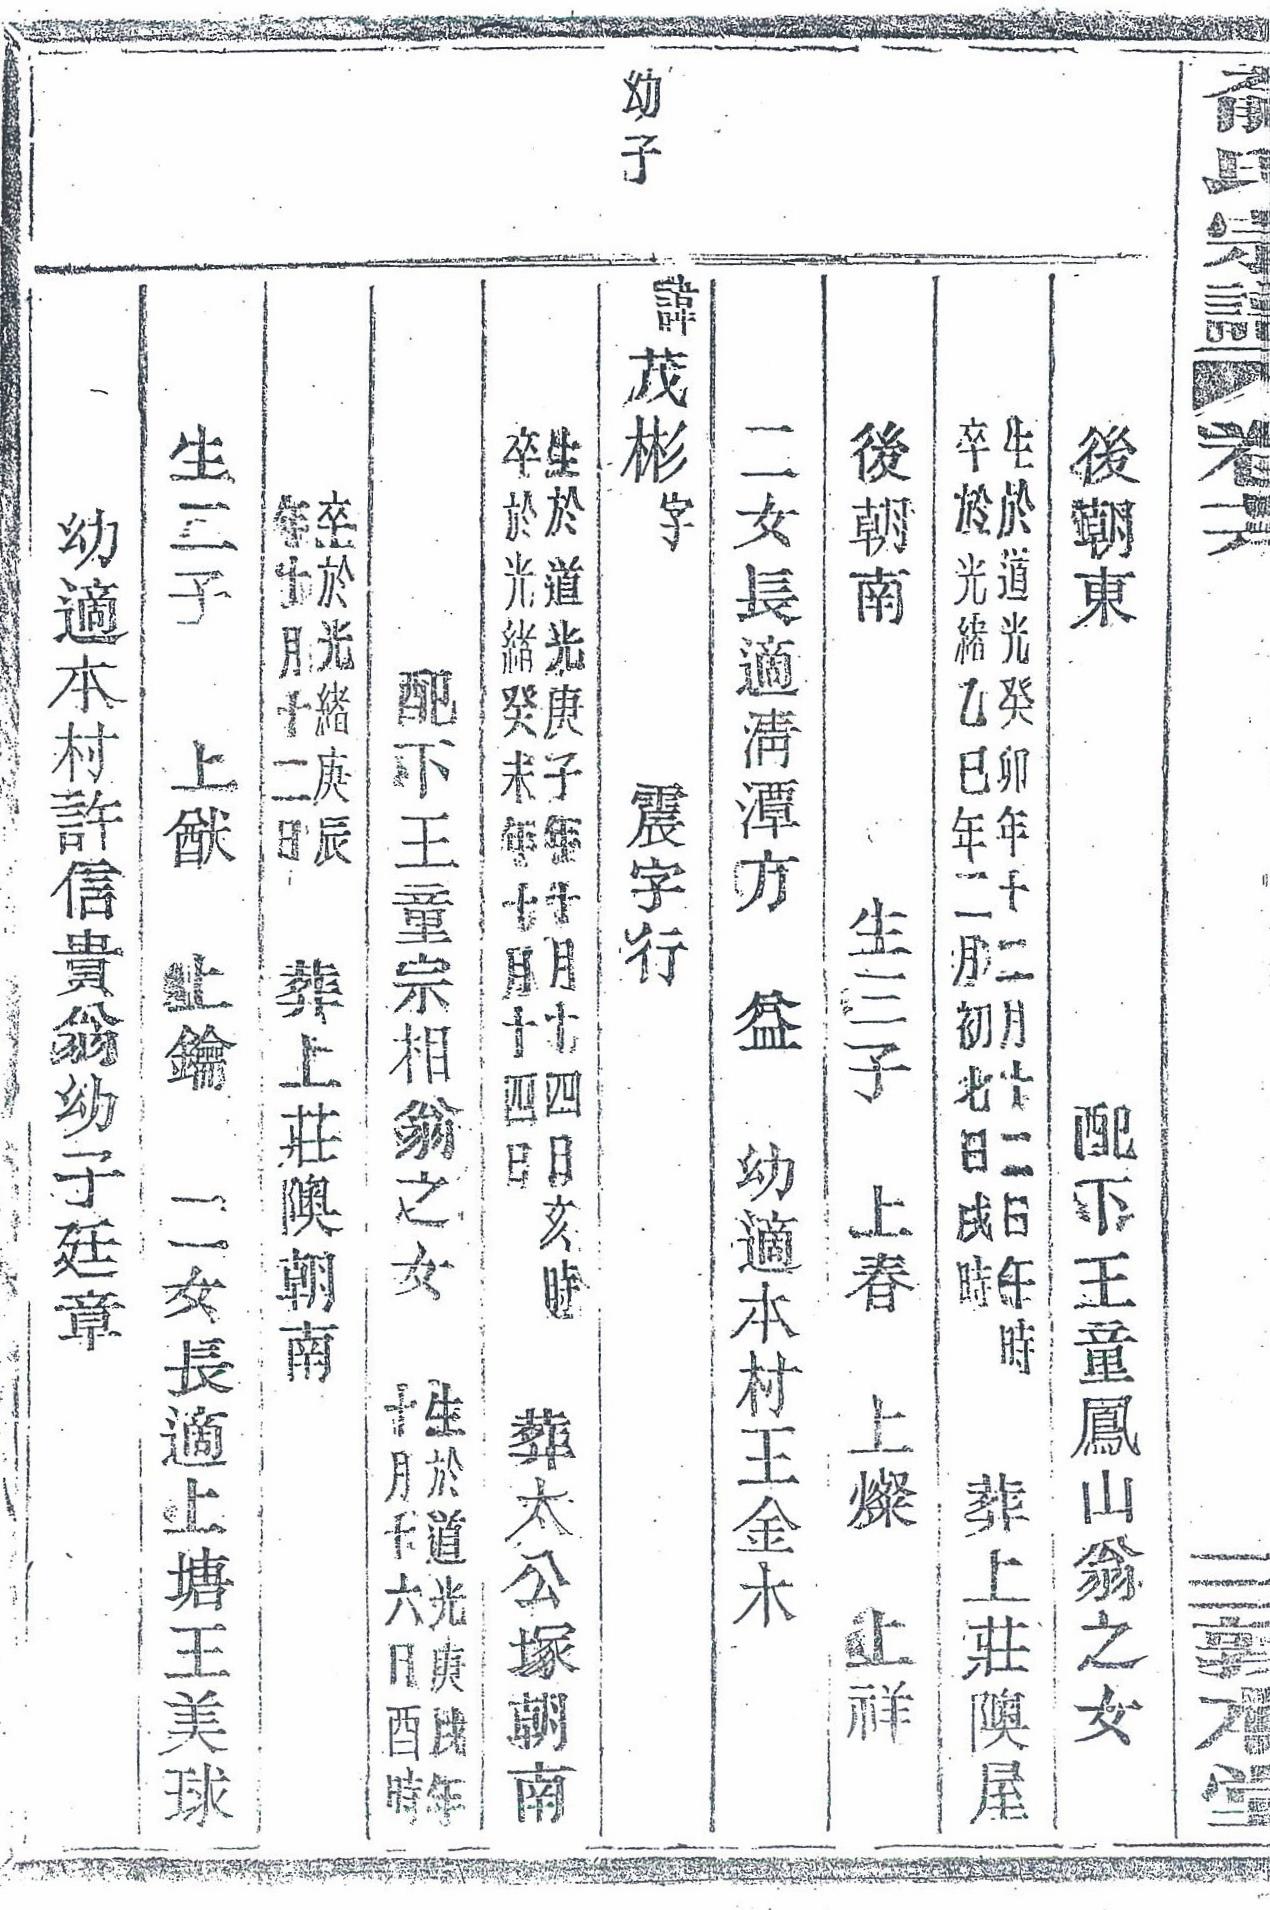 俞氏宗譜 卷六 三 敦本堂
後朝東 配下王童鳳山翁之女
生於道光癸卯年十二月十二日午時
卒於光緒乙巳年二月初七日戌時
葬上莊隩屋
後朝南 生三子 上春 上燦 上祥
二女長適清潭方 益 幼適本村王金木
幼子
諱茂彬字 震字行
生於道光庚子年十月十四日亥時
卒於光緒癸未年十月十四日
葬太公塚朝南
配下王童宗相翁之女
生於道光庚戌年
十月十六日酉時
卒於光緒庚辰
年十月十二日
葬上莊隩朝南
生二子 上猷 上鑰 二女長適上塘王美球
幼適本村許信貴翁幼子廷章